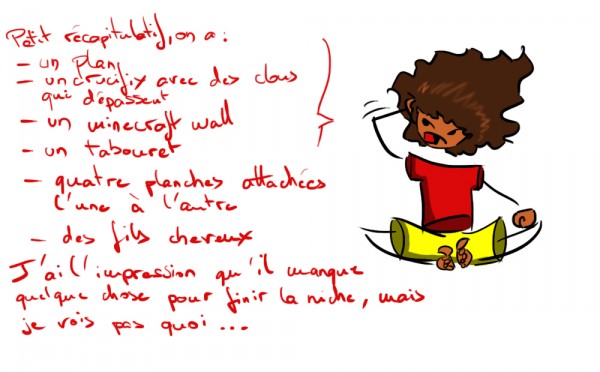 Petit récapitulatif, on a :
- un plan
- un crucifix avec des clous
qui dépassent
- un minecraft wall
- un tabouret
- quatre planches attachées
l'une à l'autre
- des fils cheveux
J'ai l'impression qu'il manque
quelque chose pour finir la niche, mais
je vois pas quoi ...